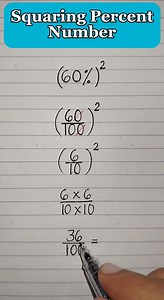 Squaring Percent
Number
(60%)²
(60/100)²
(6/10)²
6 × 6
10 × 10
36
100 =